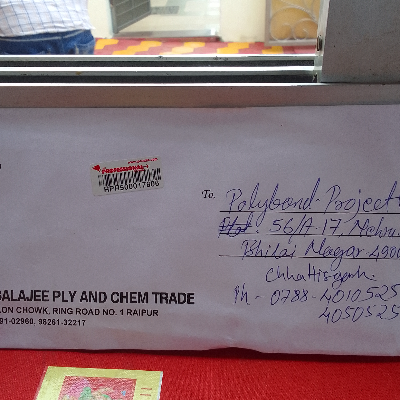 HPR500017806
To,
Polybond Project
56/A-17, Nehru
Bhilai Nagar-4900
Chhattisgarh.
Ph - 0788-4010525
4050525
BALAJEE PLY AND CHEM TRADE
LON CHOWK, RING ROAD NO. 1 RAIPUR
91-02960, 98261-32217